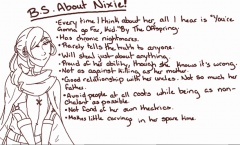 B.S. About Nixie!
•Every time I think about her, all I hear is "You're
Gonna go Far, Kid." By The Offspring.
•Has chronic nightmares.
•Rarely tells the truth to anyone.
•Will steal just about anything.
•Proud of her ability, though she knows it's wrong.
•Not as against killing as her mother.
•Good relationship with her uncles. Not so much her
father.
•Avoid people at all costs while being as non-
chalant as possible.
•Not fond of her own theatrics.
•Makes little carvings in her spare time.